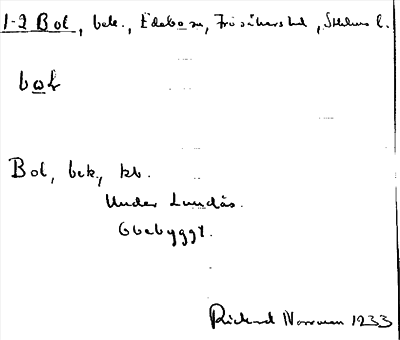 1-2 Bol, bek., Edebo sn, Frösåkers hd, Sthlms l.
bɷl
Bol, bek, kb.
Under Lundås.
Obebyggt.
Rickard Norrman 1933